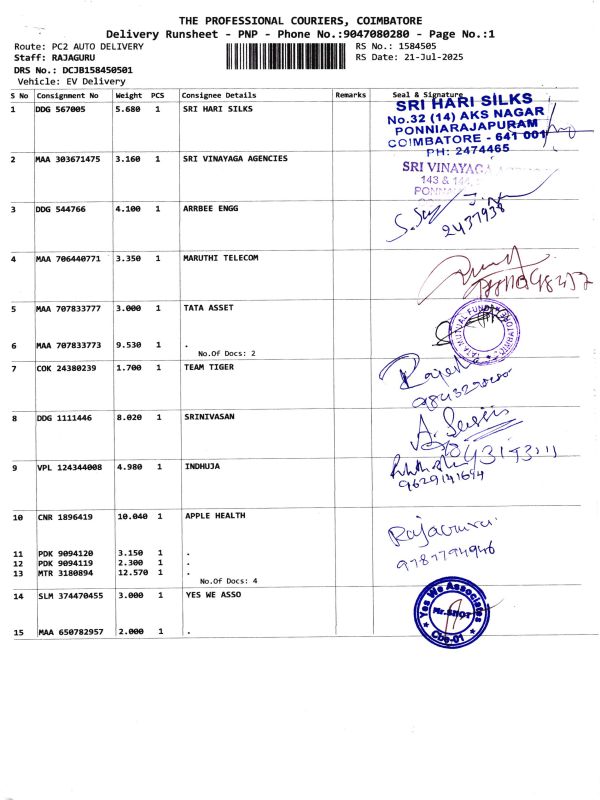 THE PROFESSIONAL COURIERS, COIMBATORE
Delivery Runsheet - PNP - Phone No.:9047080280 - Page No.:1
Route: PC2 AUTO DELIVERY RS No.: 1584505
Staff: RAJAGURU RS Date: 21-Jul-2025
DRS No.: DCJB158450501
Vehicle: EV Delivery
S No Consignment No Weight PCS Consignee Details Remarks Seal & Signature
1 DDG 567005 5.680 1 SRI HARI SILKS
SRI HARI SILKS
No.32 (14) AKS NAGAR
PONNIARAJAPURAM
COIMBATORE - 641 001
PH: 2474465
2 MAA 303671475 3.160 1 SRI VINAYAGA AGENCIES
SRI VINAYAGA
143 & 144,
3 DDG 544766 4.100 1 ARRBEE ENGG
2437938
4 MAA 706440771 3.350 1 MARUTHI TELECOM
5 MAA 707833777 3.000 1 TATA ASSET
TATA MUTUAL FUND
6 MAA 707833773 9.530 1 .
No.Of Docs: 2
7 COK 24380239 1.700 1 TEAM TIGER
Rajesh
8 DDG 1111446 8.020 1 SRINIVASAN
9 VPL 124344008 4.980 1 INDHUJA
9629141694
10 CNR 1896419 10.040 1 APPLE HEALTH
9787794946
11 PDK 9094120 3.150 1 .
12 PDK 9094119 2.300 1 .
13 MTR 3180894 12.570 1 .
No.Of Docs: 4
14 SLM 374470455 3.000 1 YES WE ASSO
Yes We Associates
Cbe-01
15 MAA 650782957 2.000 1 .